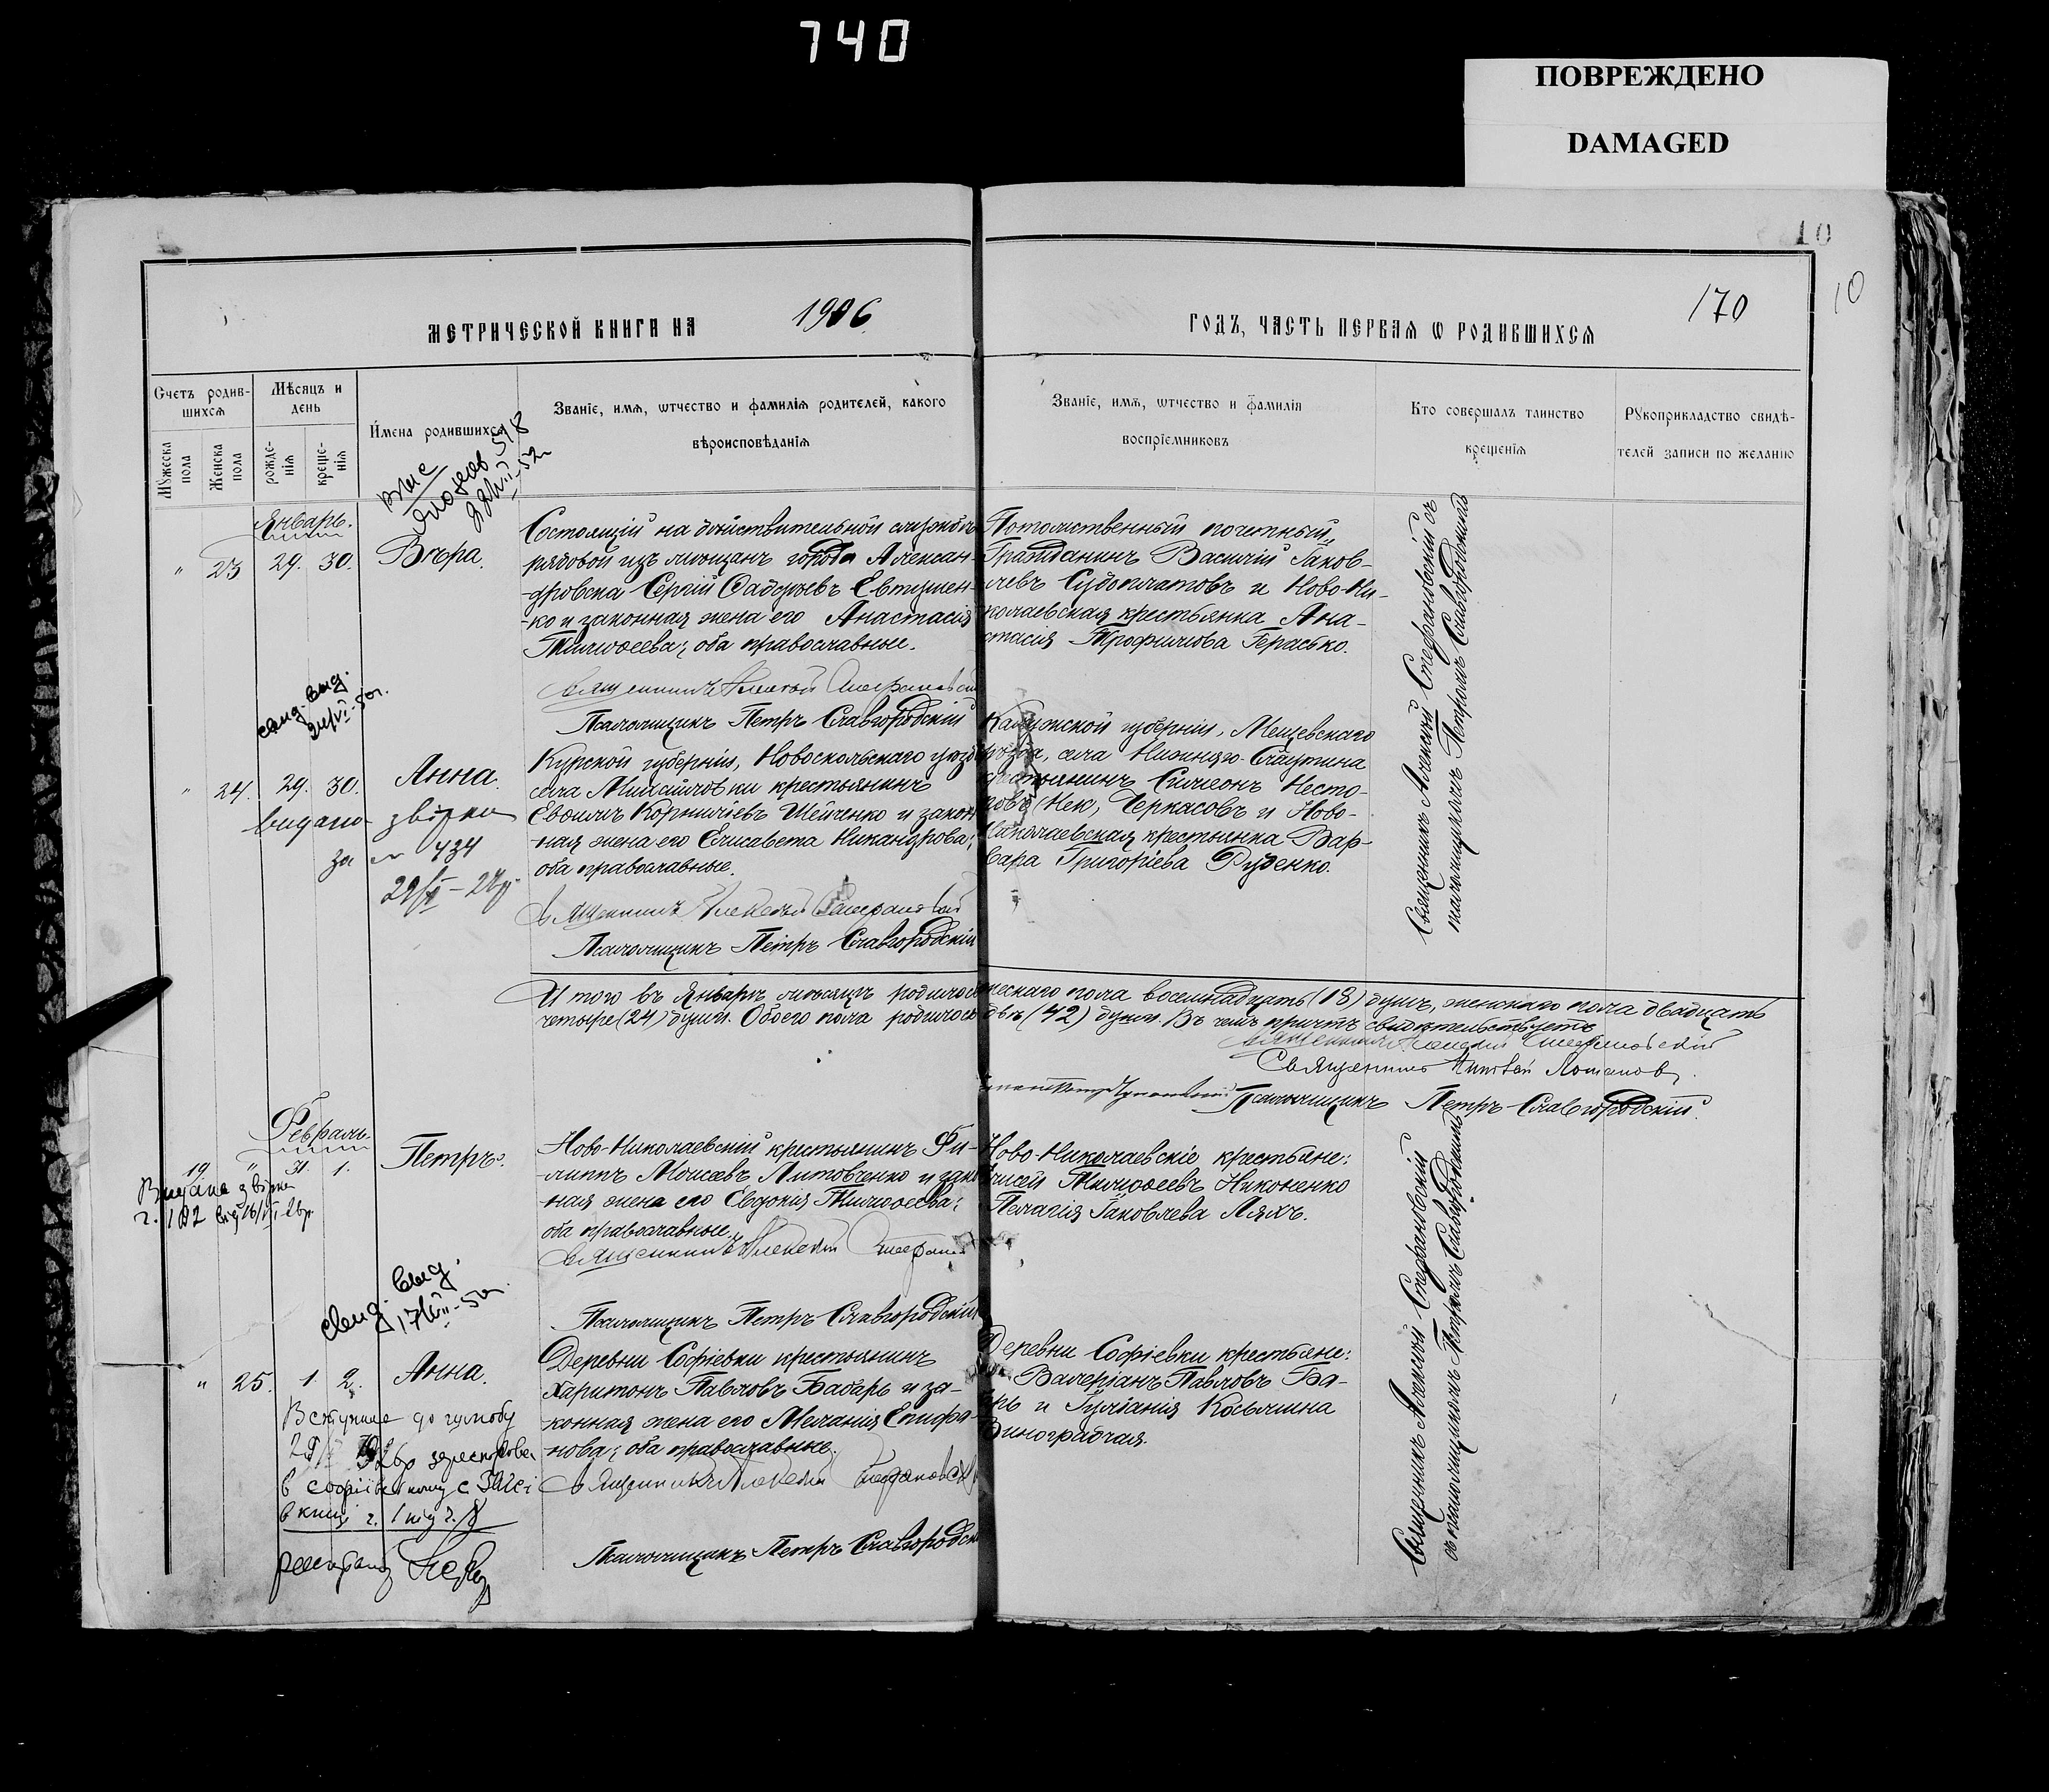 740
ПОВРЕЖДЕНО
DAMAGED
10
10
МЕТРИЧЕСКОЙ КНИГИ НА 1906
ГОДЪ, ЧАСТЬ ПЕРВАЯ Ѡ РОДИВШИХСЯ
170
Счетъ родив-
шихся
Мужеска пола
Женска пола
Мѣсяцъ и
день
рожде-
нія
креще-
нія
Имена родившихся
Званіе, имя, ѡтчество и фамилія родителей, какого
вѣроисповѣданія
Званіе, имя, ѡтчество и фамилія
воспріемниковъ
Кто совершалъ таинство
крещенія
Рукоприкладство свидѣ-
телей записи по желанію
Январь.
" 23 29. 30. Вѣра.
Состоящій на дѣйствительной службѣ
рядовой изъ мѣщанъ города Алексан-
дровска Сергій Ѳаддѣевъ Евтушен-
-ко и законная жена его Анастасія
Тимоѳеева; оба православные.
Священникъ Алексѣй Стефановскій
Псаломщикъ Петръ Славгородскій
Потомственный почетный
Гражданинъ Василій Іаков-
левъ Судоплатовъ и Ново-Ни-
колаевская крестьянка Ана-
стасія Трофимова Герасько.
Священникъ Алексѣй Стефановскій съ
псаломщикомъ Петромъ Славгородскимъ
свид. выд.
" 24. 29. 30. Анна.
видано звірки
за № 434
Курской губерніи, Новоскольскаго уѣзда
села Михайловки крестьянинъ
Евѳимъ Корниліевъ Шейченко и закон-
ная жена его Елисавета Никандрова;
оба православные.
Священникъ Алексѣй Стефановскій
Псаломщикъ Петръ Славгородскій
Калужской губерніи, Мещевскаго
уѣзда, села Нижняго-
крестьянинъ Симеонъ Несто-
ровъ Черкасовъ и Ново-
Николаевская крестьянка Вар-
вара Григоріева Руденко.
Итого въ Январѣ мѣсяцѣ родилось мужескаго пола восемнадцать (18) душъ, женскаго пола двадцать
четыре (24) души. Обоего пола родилось двѣ (42) души. Въ чемъ причтъ свидѣтельствуетъ
Священникъ Алексѣй Стефановскій
Священникъ
Псаломщикъ Петръ Славгородскій.
Февраль.
19 " 31. 1. Петръ.
Видана звірка
ч. 182
Ново-Николаевскій крестьянинъ Фи-
липпъ Моисеевъ Литовченко и закон-
ная жена его Евдокія Тимоѳеева;
оба православные.
Священникъ Алексѣй
Псаломщикъ Петръ Славгородскій
Ново-Николаевскіе крестьяне:
Тимоѳеевъ Никоненко
Пелагія Іаковлева Ляхъ.
Священникъ Алексѣй Стефановскій
съ псаломщикомъ Петромъ Славгородскимъ
свид. выд.
" 25. 1. 2. Анна.
Вступила до шлюбу
Деревни Софіевки крестьянинъ
Харитонъ Павловъ Бабарь и за-
конная жена его Меланія Епифа-
нова; оба православные.
Священникъ Алексѣй Стефановскій
Псаломщикъ Петръ Славгородскій
Деревни Софіевки крестьяне:
Валеріанъ Павловъ Ба-
барь и Іуліанія Косьмина
Виноградчая.